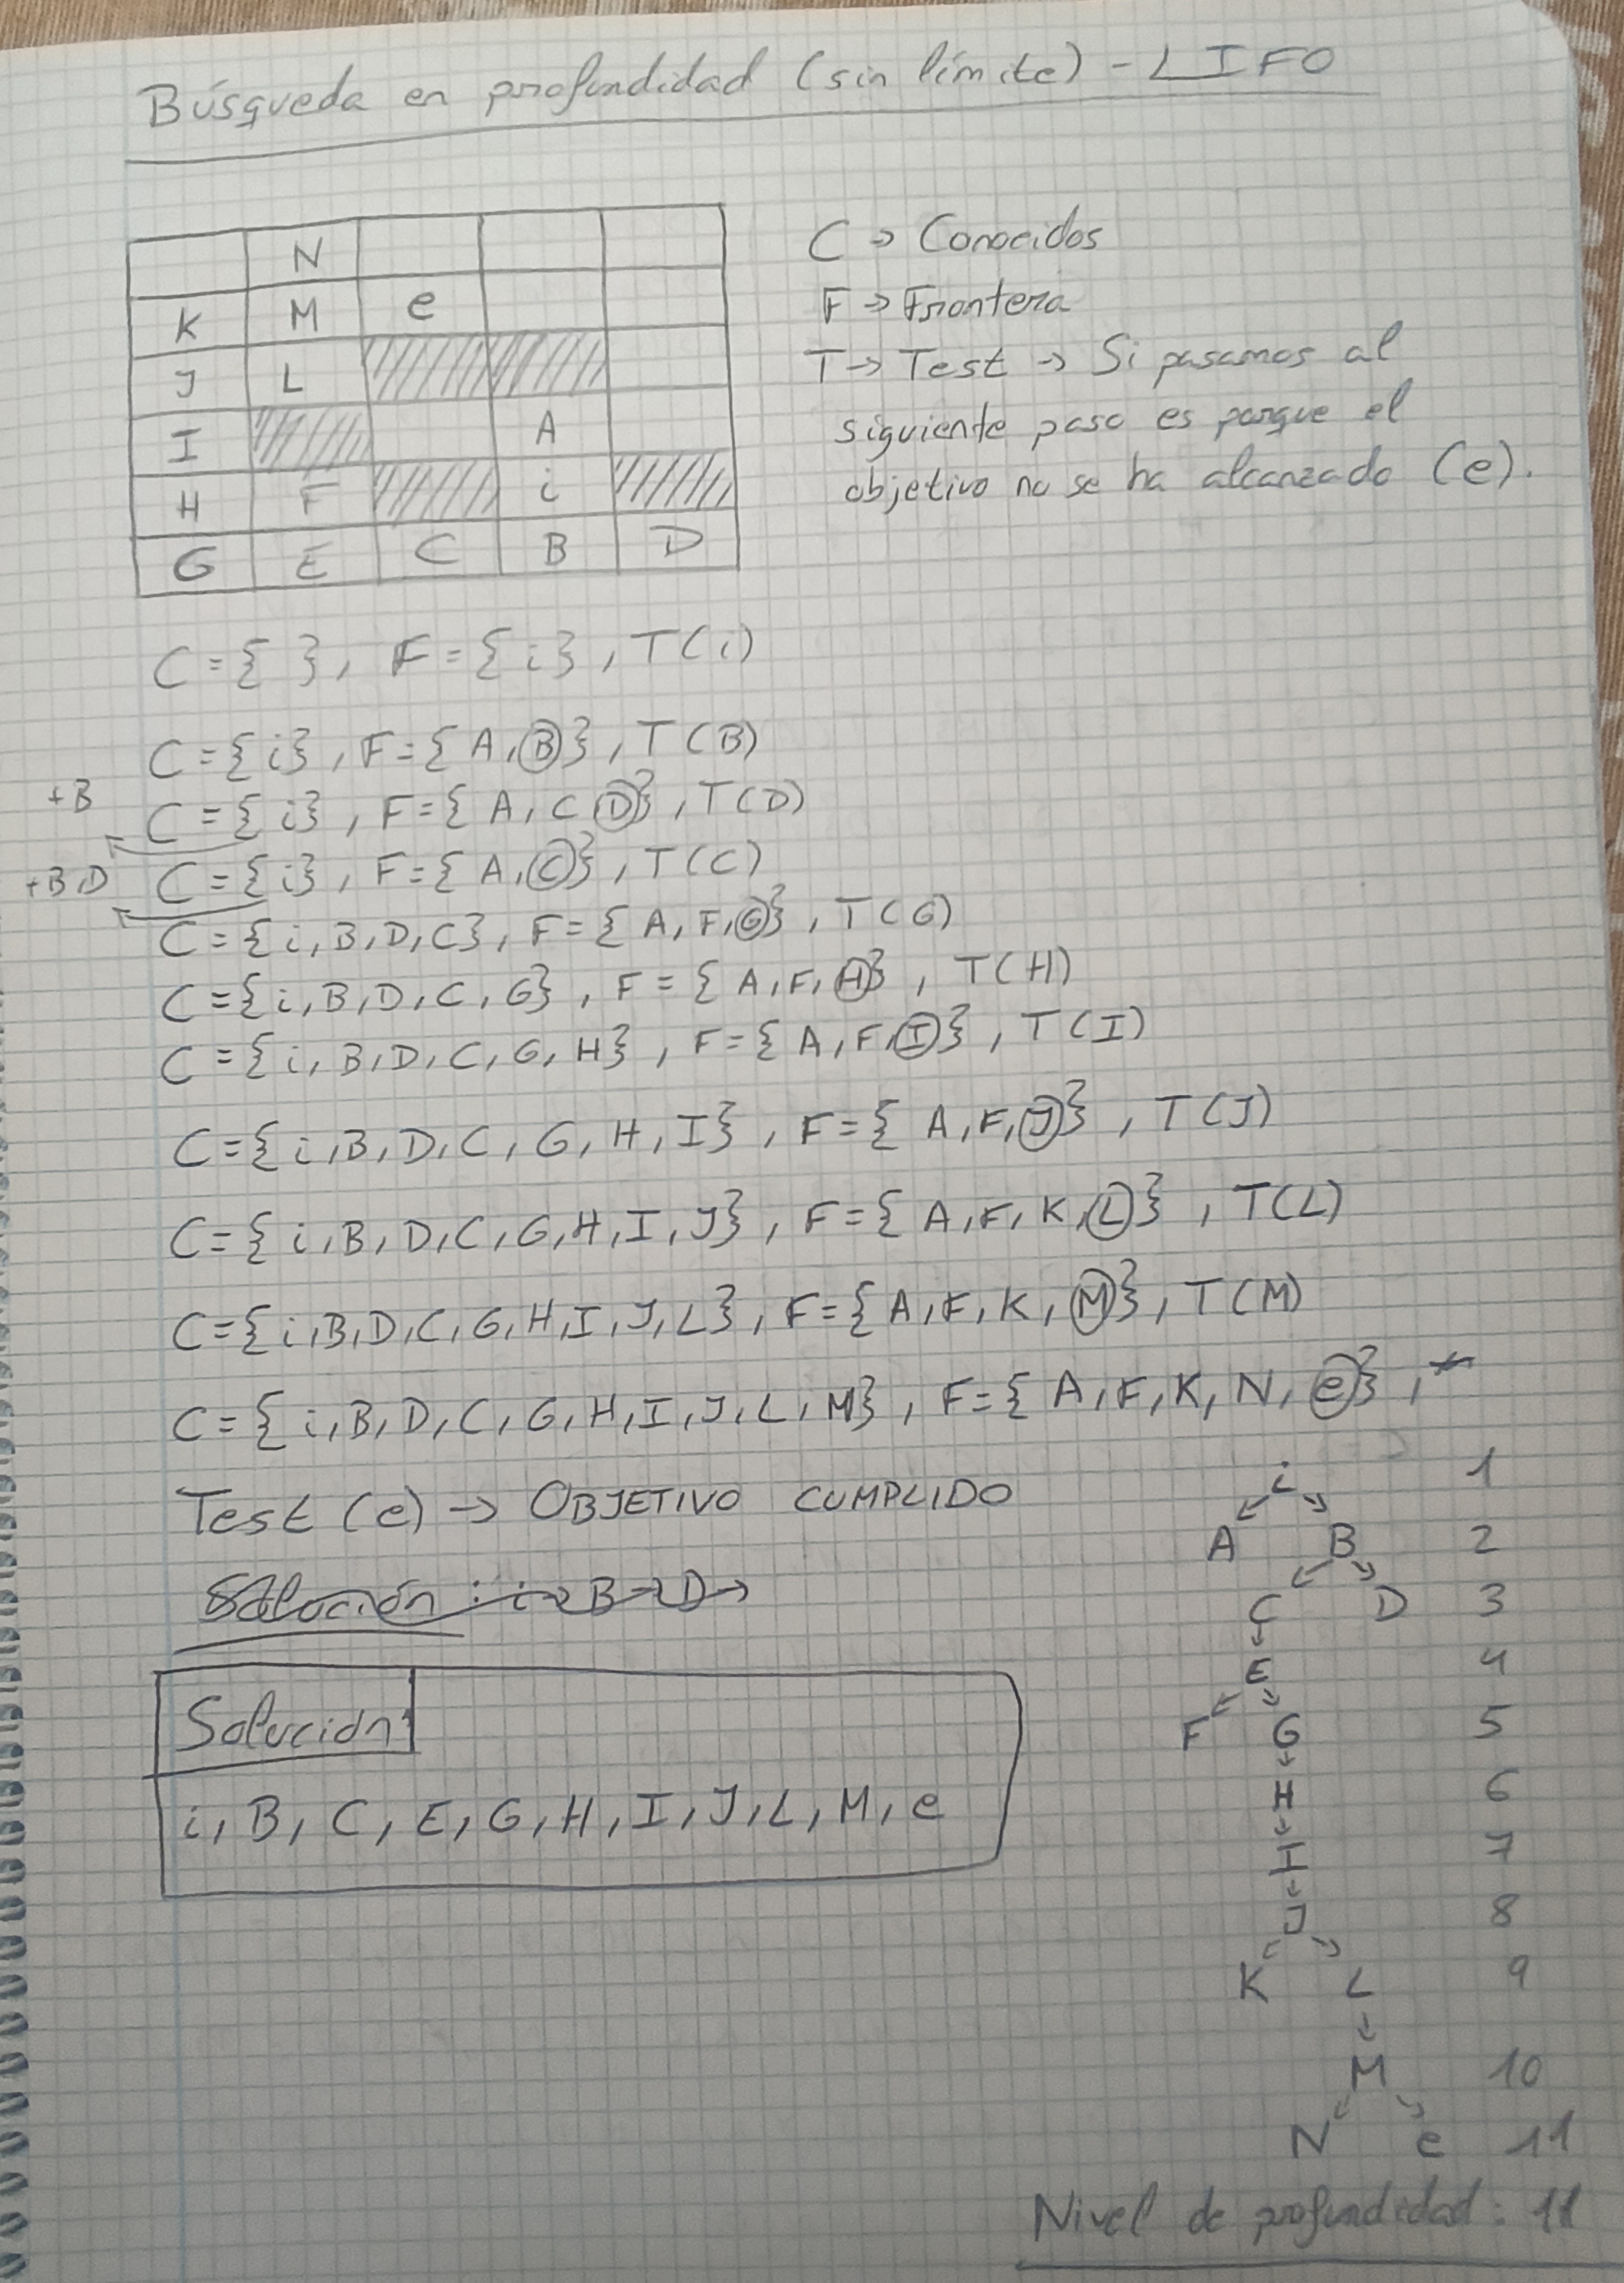 Búsqueda en profundidad (sin límite) - LIFO
N
K M e
J L
I A
H F i
G E C B D
C → Conocidos
F → Frontera
T → Test → Si pasamos al
siguiente paso es porque el
objetivo no se ha alcanzado (e).
C = { }, F = { i }, T(i)
C = { i }, F = { A, B }, T(B)
+B C = { i }, F = { A, C D }, T(D)
+B,D C = { i }, F = { A, C }, T(C)
C = { i, B, D, C }, F = { A, F, G }, T(G)
C = { i, B, D, C, G }, F = { A, F, H }, T(H)
C = { i, B, D, C, G, H }, F = { A, F, I }, T(I)
C = { i, B, D, C, G, H, I }, F = { A, F, J }, T(J)
C = { i, B, D, C, G, H, I, J }, F = { A, F, K, L }, T(L)
C = { i, B, D, C, G, H, I, J, L }, F = { A, F, K, M }, T(M)
C = { i, B, D, C, G, H, I, J, L, M }, F = { A, F, K, N, e },
Test (e) → OBJETIVO CUMPLIDO
Solución: i → B → D →
Solución:
i, B, C, E, G, H, I, J, L, M, e
i 1
A B 2
C D 3
E 4
F G 5
H 6
I 7
J 8
K L 9
M 10
N e 11
Nivel de profundidad: 11